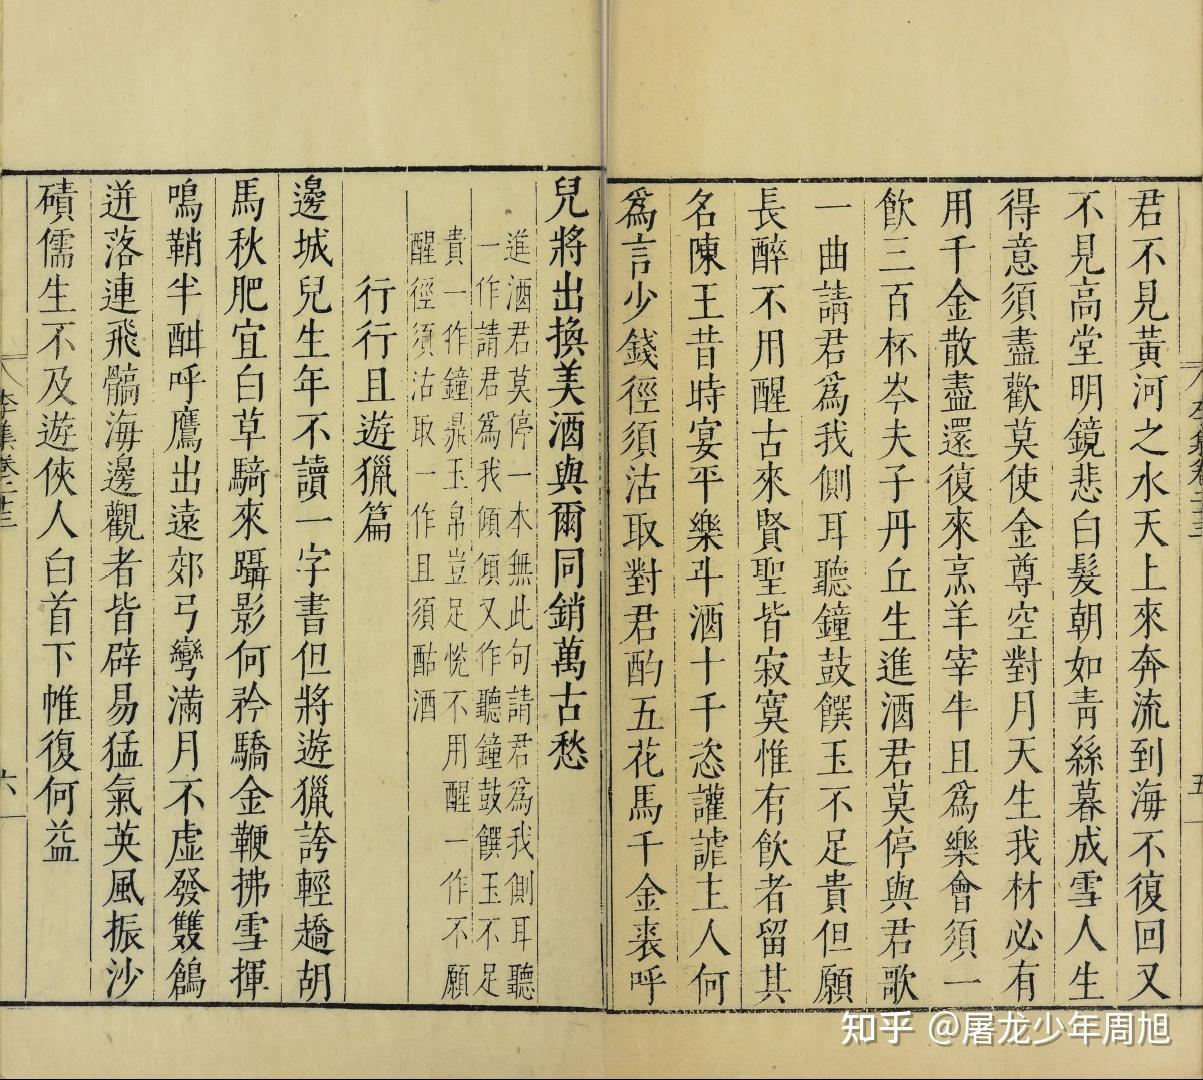 君不見黃河之水天上來奔流到海不復回又
不見高堂明鏡悲白髮朝如青絲暮成雪人生
得意須盡歡莫使金尊空對月天生我材必有
用千金散盡還復來烹羊宰牛且爲樂會須一
飲三百杯岑夫子丹丘生進酒君莫停與君歌
一曲請君爲我側耳聽鐘鼓饌玉不足貴但願
長醉不用醒古來賢聖皆寂寞惟有飲者留其
名陳王昔時宴平樂斗酒十千恣讙謔主人何
爲言少錢徑須沽取對君酌五花馬千金裘呼
五
兒將出換美酒與爾同銷萬古愁
進酒君莫停一本無此句請君爲我側耳聽
一作請君爲我傾傾又作聽鐘鼓饌玉不足
貴一作鐘鼎玉帛豈足悦不用醒一作不願
醒徑須沽取一作且須酤酒
行行且遊獵篇
邊城兒生年不讀一字書但將遊獵誇輕趫胡
馬秋肥宜白草騎來躡影何矜驕金鞭拂雪揮
鳴鞘半酣呼鷹出遠郊弓彎滿月不虛發雙鶬
迸落連飛髇海邊觀者皆辟易猛氣英風振沙
磧儒生不及遊俠人白首下帷復何益
六
知乎 @屠龙少年周旭